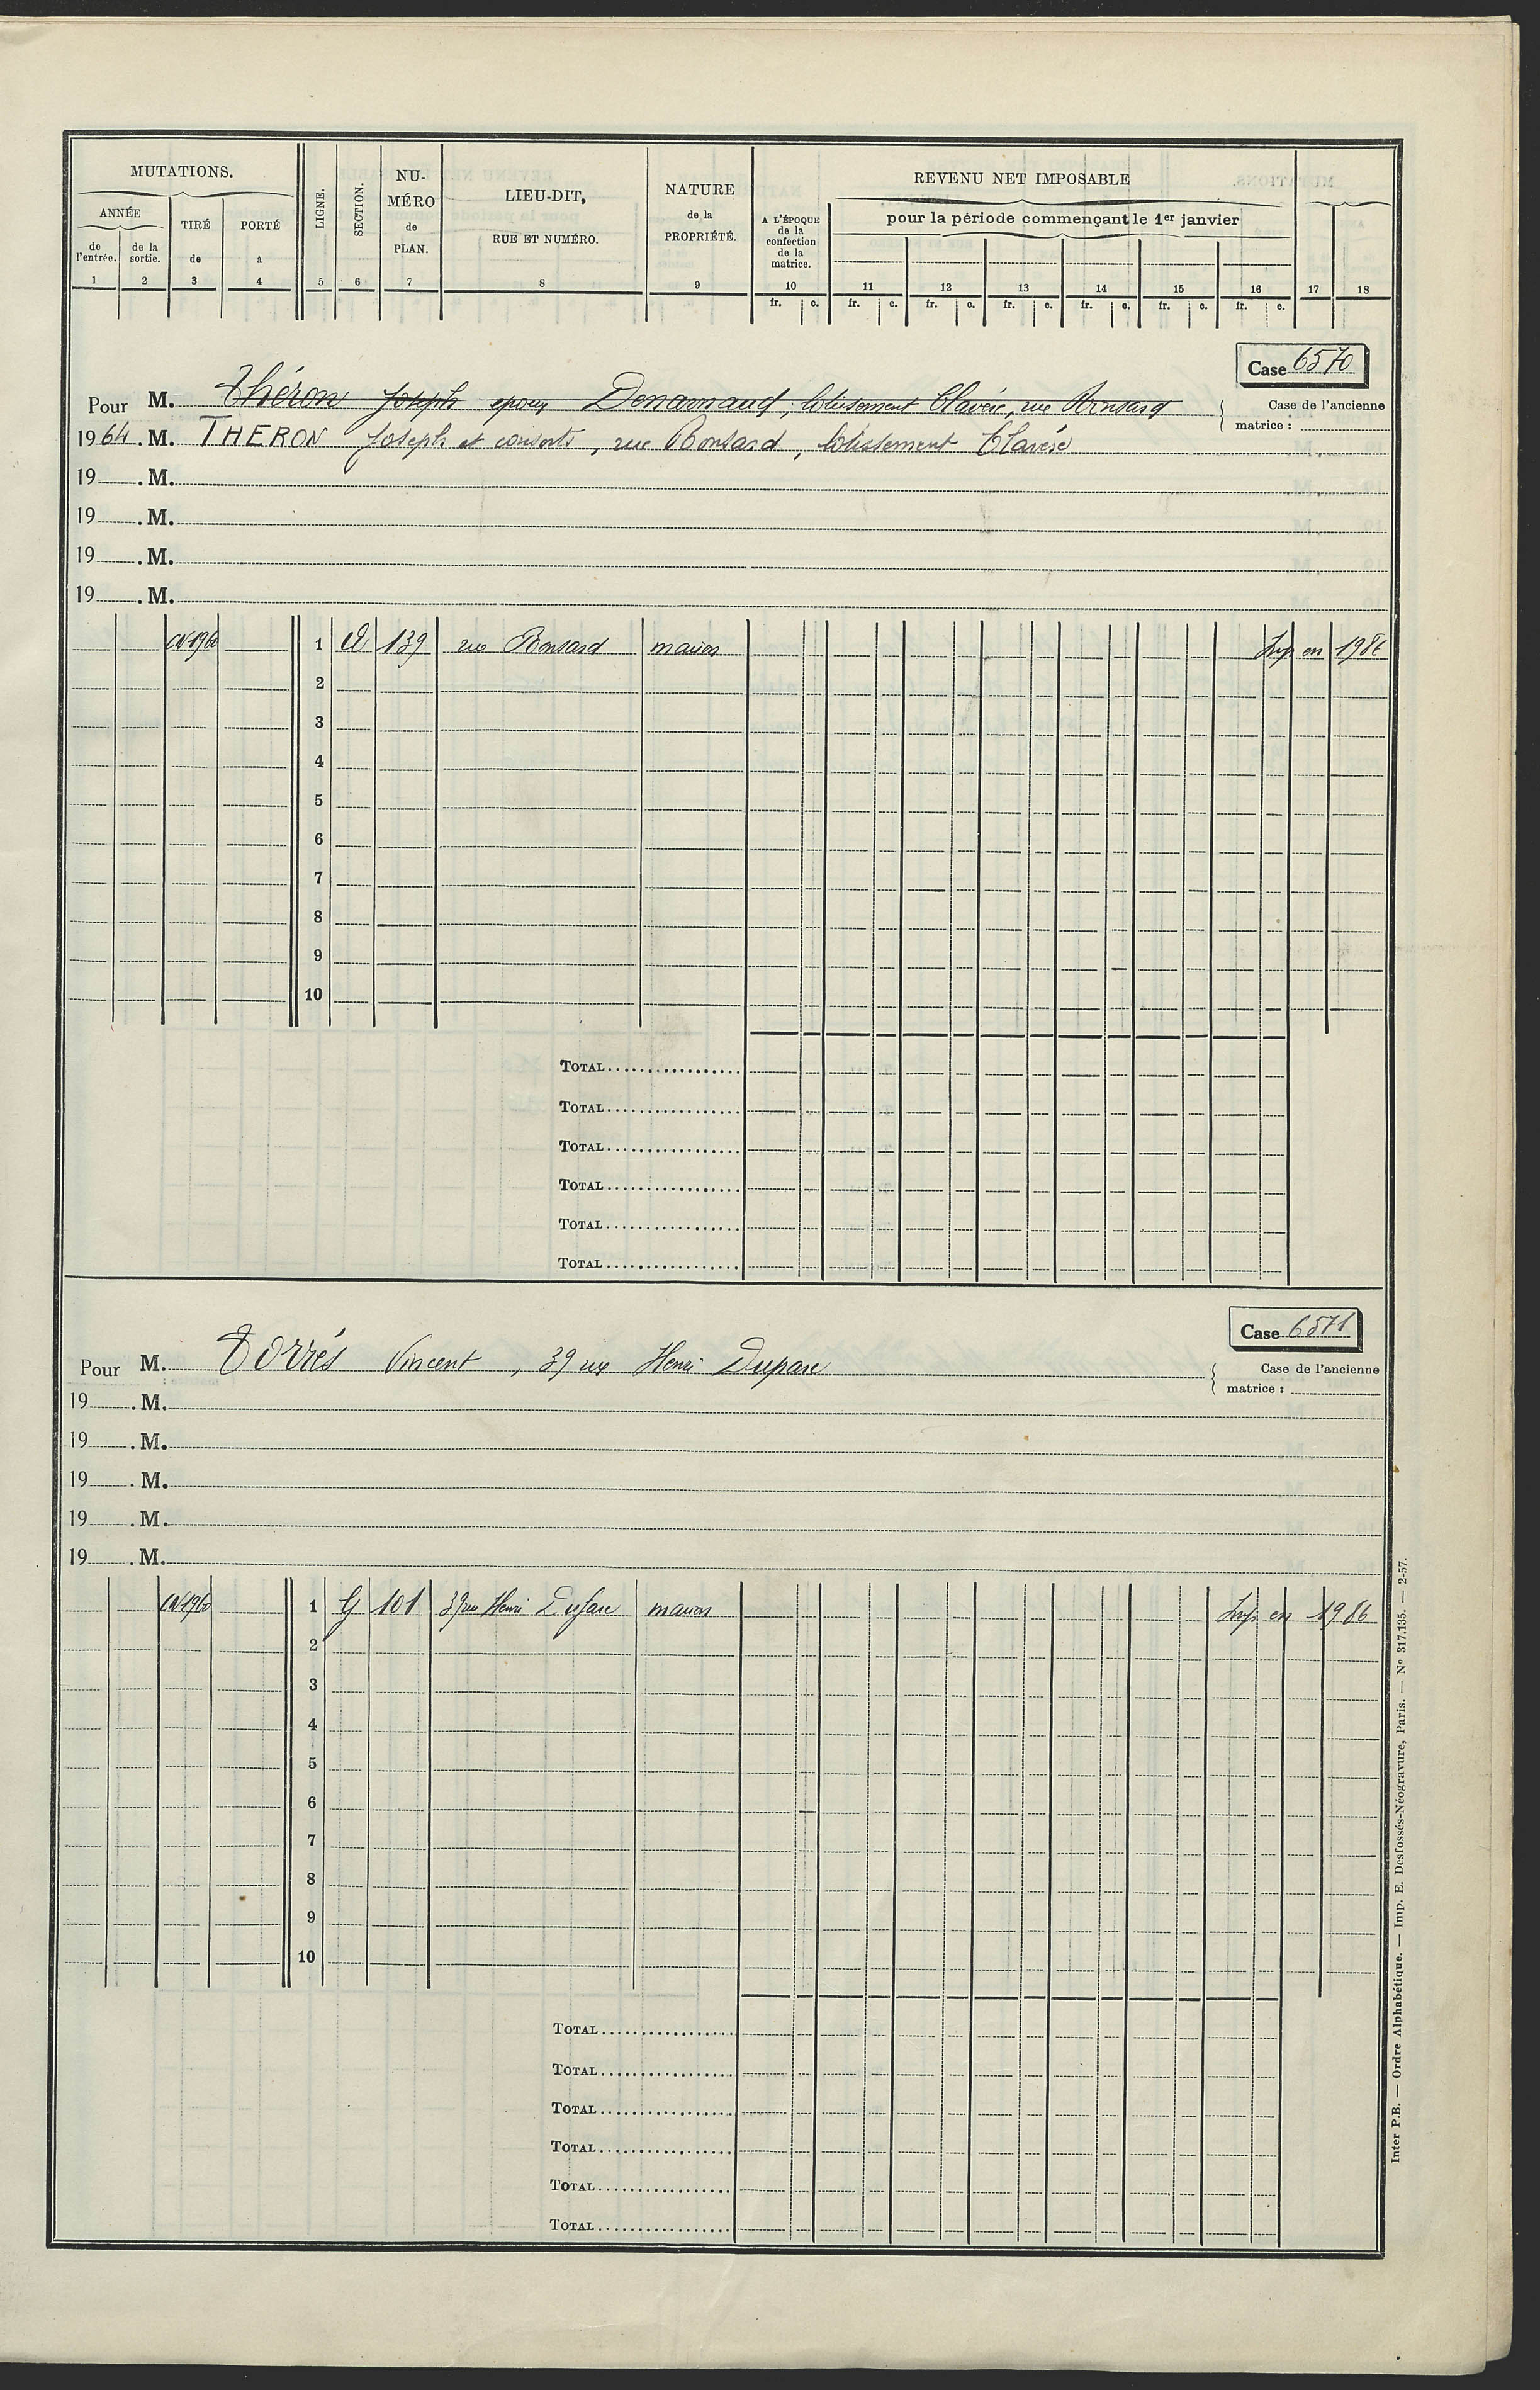 MUTATIONS.
ANNÉE
de l'entrée.
de la sortie.
TIRÉ de
PORTÉ à
LIGNE.
SECTION.
NU-MÉRO de PLAN.
LIEU-DIT,
RUE ET NUMÉRO.
NATURE de la PROPRIÉTÉ.
A L'ÉPOQUE de la confection de la matrice.
REVENU NET IMPOSABLE
pour la période commençant le 1er janvier
1 2 3 4 5 6 7 8 9 10 11 12 13 14 15 16 17 18
fr. c. fr. c. fr. c. fr. c. fr. c. fr. c. fr. c.
Case 6570
Pour M. Théron Joseph epoux Denarnaud, lotissement Clavérie, rue Ronsard
Case de l'ancienne matrice :
1964. M. THERON Joseph et consorts, rue Ronsard, lotissement Clavérie
19 . M.
19 . M.
19 . M.
19 . M.
CN 1960 1 139 rue Ronsard maison Imp en 1986
2
3
4
5
6
7
8
9
10
TOTAL
TOTAL
TOTAL
TOTAL
TOTAL
TOTAL
Case 6571
Pour M. Torrés Vincent, 39 rue Henri Duparc
Case de l'ancienne matrice :
19 . M.
19 . M.
19 . M.
19 . M.
19 . M.
CN 1960 1 G 101 39 rue Henri Duparc maison Imp. en 1986
2
3
4
5
6
7
8
9
10
TOTAL
TOTAL
TOTAL
TOTAL
TOTAL
TOTAL
Inter P.B. — Ordre Alphabétique. — Imp. E. Desfossés-Néogravure, Paris. — N° 317.135. — 2-57.